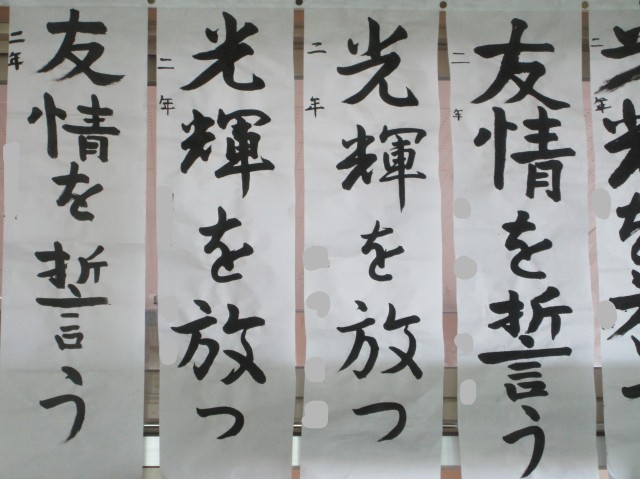 二年
友情を誓う
二年
光輝を放つ
二年
光輝を放つ
二年
友情を誓う
二年